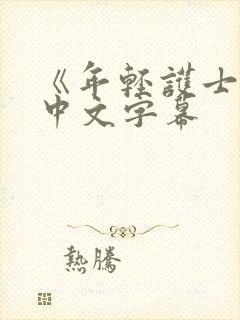 《年轻護士
中文字幕
熱騰